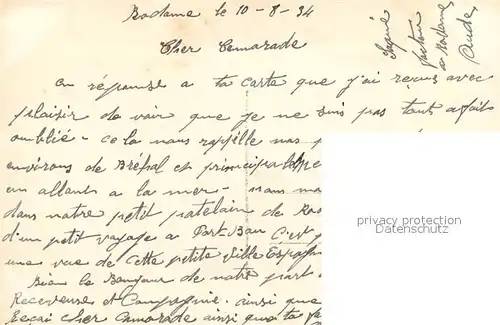 Rodome le 10-8-34
Cher Camarade
en réponse a ta carte que j'ai reçus avec
plaisir de voir que je ne suis pas tout a fait
oublié - cela nous rappelle nos
environs de Bréhal et principalepe
en allant a la mer -
dans notre petit patelain de Ro
d'un petit voyage a Port Bou C'est
une vue de cette petite Ville Espag
Bien le Bonjour de notre part
Receveuse et Compagnie. ainsi que
Reçoi cher Camarade ainsi que ta
facteur
a Rodome
Aude
privacy protection
Datenschutz